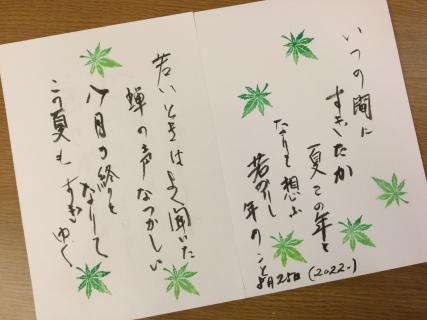 いつの間に
すぎいたか
夏この年と
なりて想ふ
若かりし
年のこと
8月25日 (2022.)
若いときはよく聞いた
蝉の声なつかしい
八月の終りと
なりて
この夏もすぎゆく